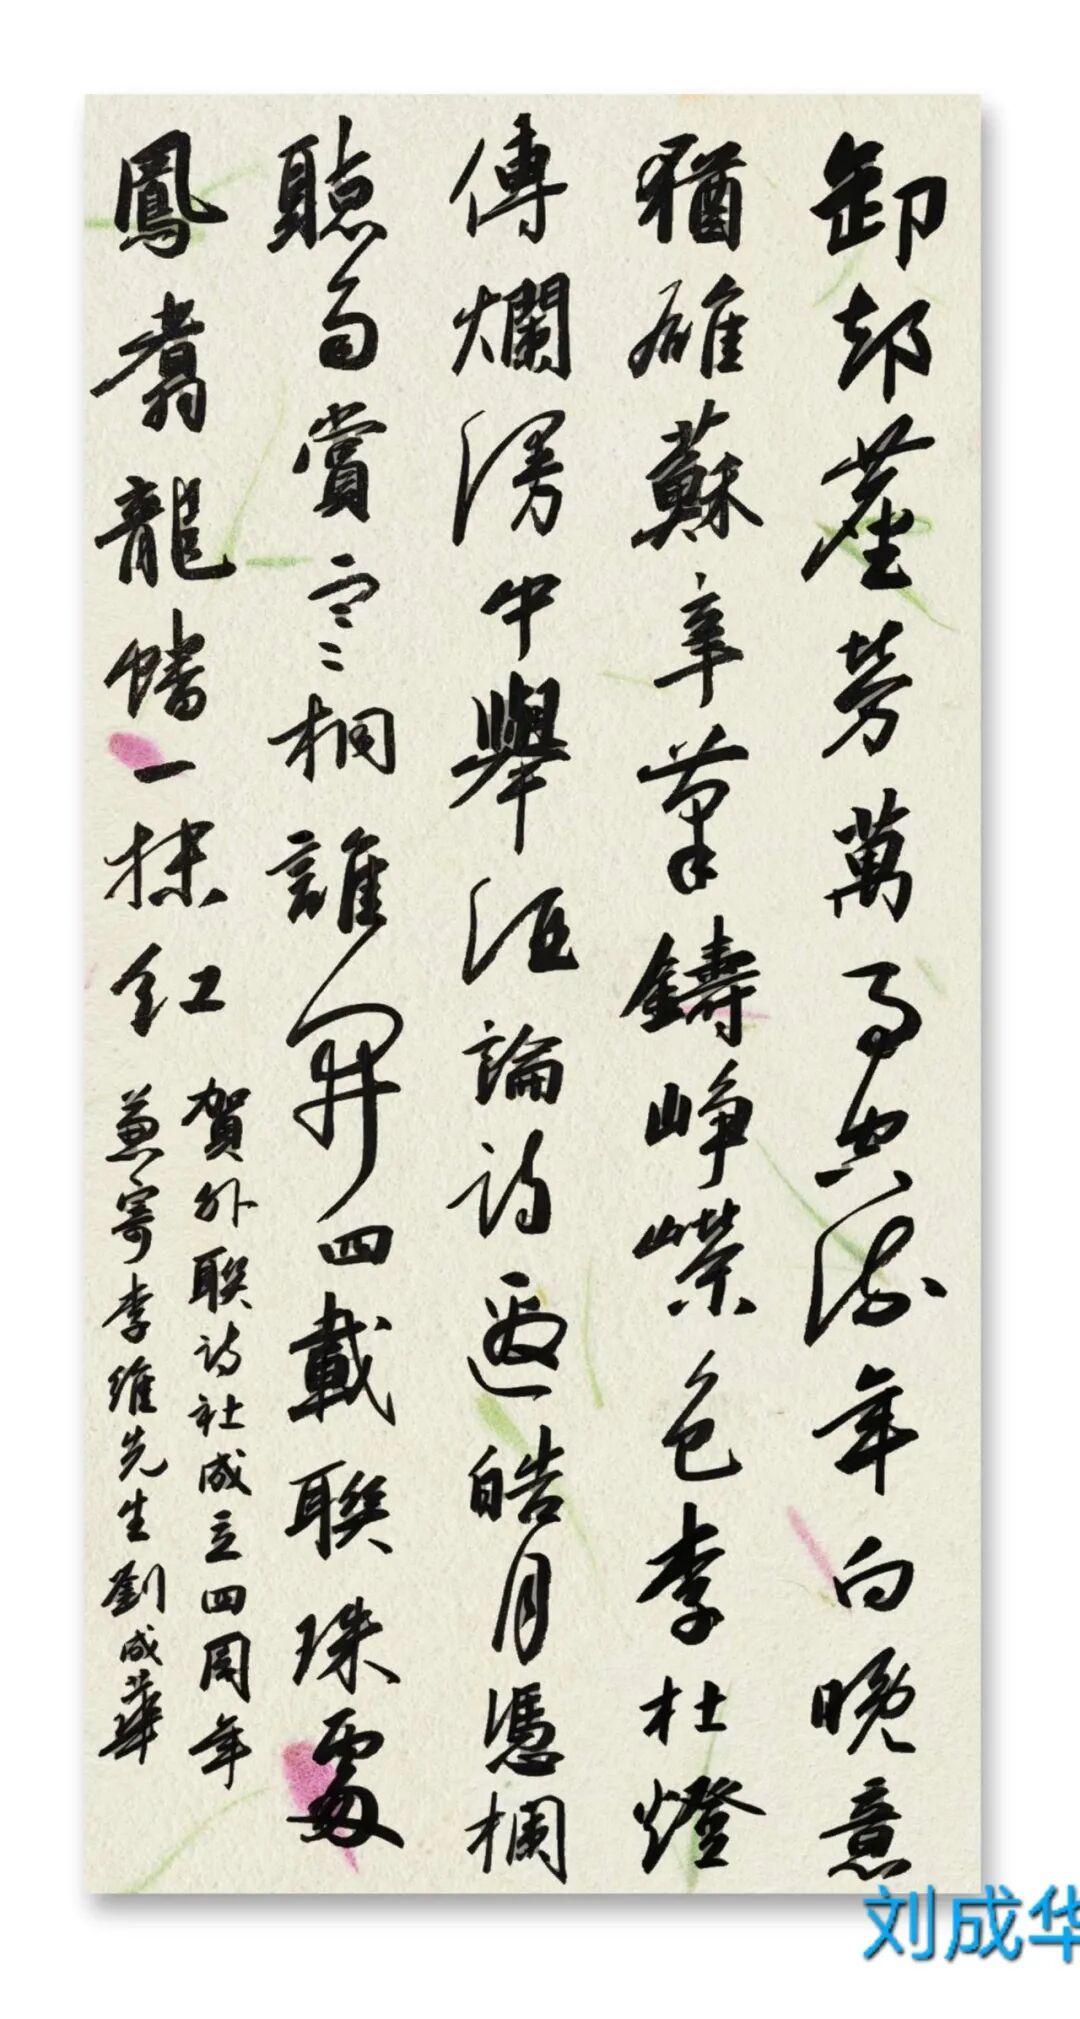 卸却塵勞萬事空流年向晚意
猶雄蘇辛筆鑄崢嶸色李杜燈
傳爛漫中舉酒論詩邀皓月憑欄
聽賞桐誰開四載聯珠處
鳳翥龍蟠一抹红
賀外聯詩社成立四周年
兼寄李維先生劉成華
刘成华